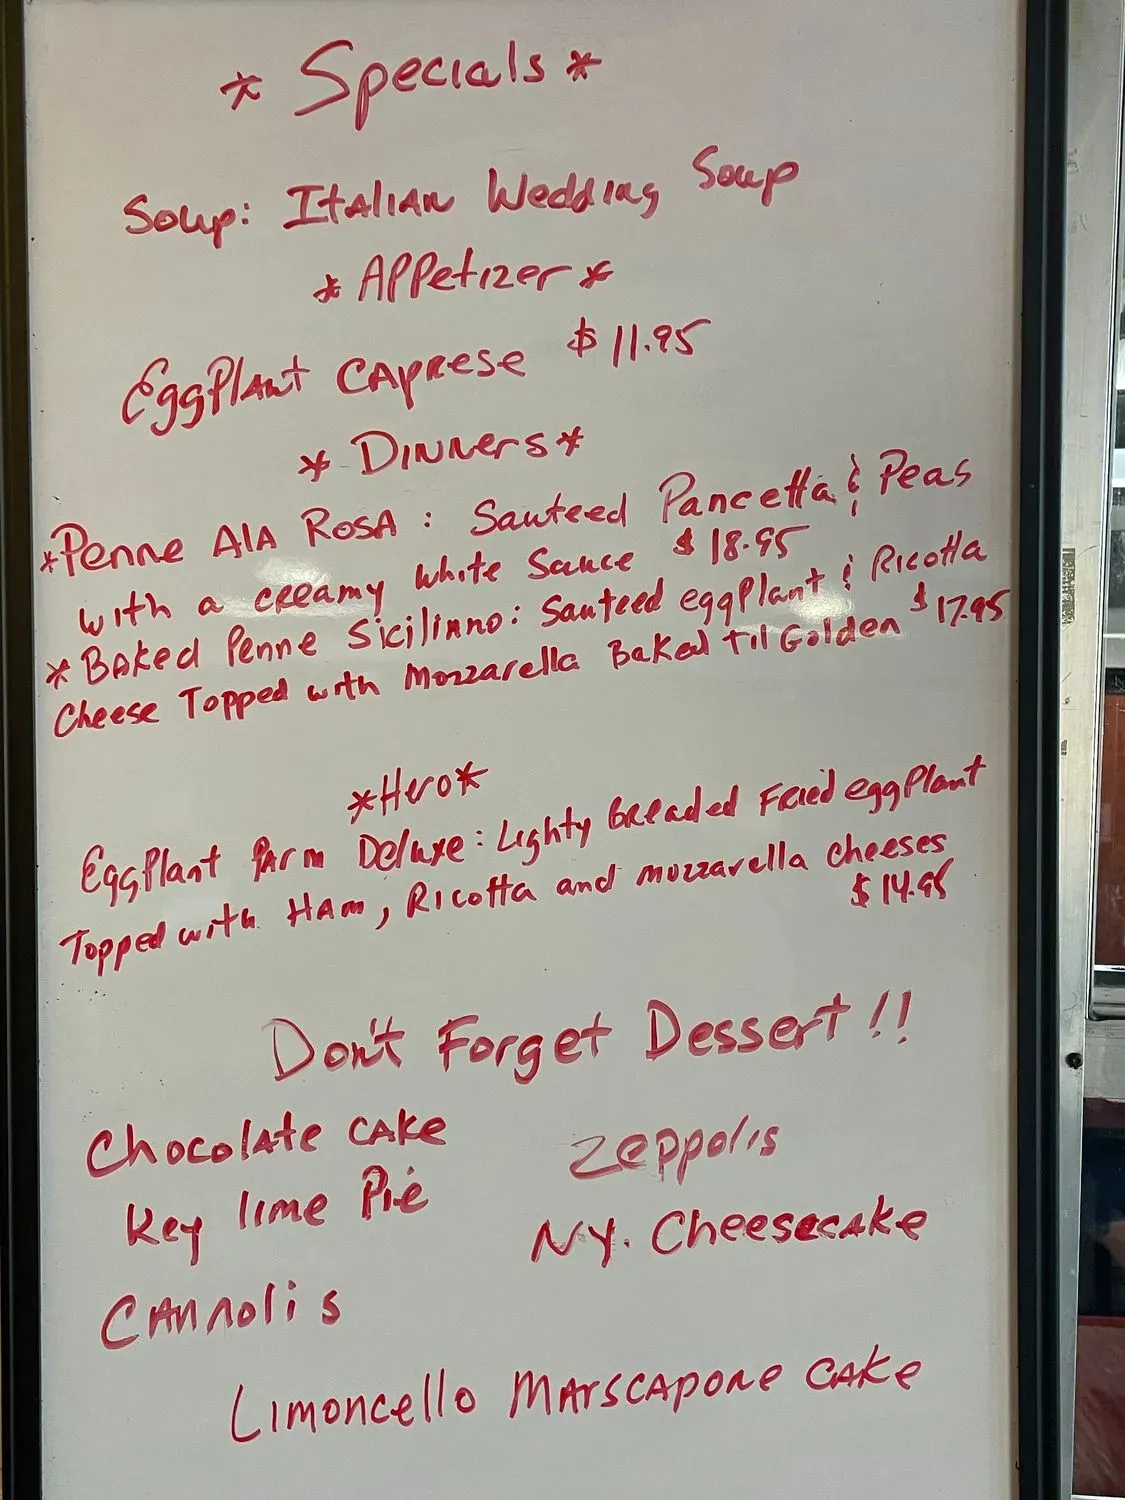 * Specials *
Soup: Italian Wedding Soup
* Appetizer *
Eggplant Caprese $11.95
* Dinners *
*Penne Ala Rosa: Sauteed Pancetta & Peas
with a creamy white Sauce $18.95
*Baked Penne Sicilianno: Sauteed eggplant & Ricotta
Cheese Topped with Mozzarella Baked til Golden $17.95
*Hero*
Eggplant Parm Deluxe: Lighty Breaded Fried eggplant
Topped with Ham, Ricotta and mozzarella cheeses
$14.95
Don't Forget Dessert!!
Chocolate cake
Zeppolis
Key lime Pie
N.Y. Cheesecake
Cannolis
Limoncello Marscapone cake